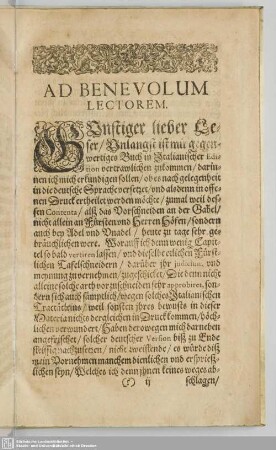 AD BENEVOLUM
LECTOREM.
GUnstiger lieber Le-
ser/ Unlangst ist mir gegen-
wertiges Buch in Italianischer Edi-
tion vertrawlichen zukommen/ darin-
nen ich mich erkundigen sollen/ ob es nach gelegenheit
in die deutsche Sprache versetzet/ und alsdenn in offe-
nen Druck ertheilet werden möchte/ zumal weil des-
sen Contenta, alß das Vorschneiden an der Tafel/
nicht allein an Fürsten und Herren Höfen/ sondern
auch bey Adel und Unadel/ heute zu tage sehr ge-
bräuchlichen were. Worauff ich denn wenig Capi-
tel so bald vertiren lassen/ und dieselbe etlichen Fürst-
lichen Tafelschneidern/ darüber ihr judicium, und
meynung zu vernehmen/ zugeschicket/ Die denn nicht
alleine solche arth vorzuschneiden sehr approbiret, son-
dern sich auch simpliciter wegen solches Italianischen
Tractätleins/ weil sonsten jhres bewusts in dieser
Materia nichts dergleichen in Druck kommen/ höch-
lichen verwundert/ Haben derowegen mich darneben
angefrischet/ solcher deutschen Version biß zu Ende
nachzusetzen/ nicht zweiflende/ es würde diß
mein Vornehmen manchem dienlichen und ersprieß-
lichen seyn/ Welches ich denn jhnen keines weges ab-
ij schlagen/